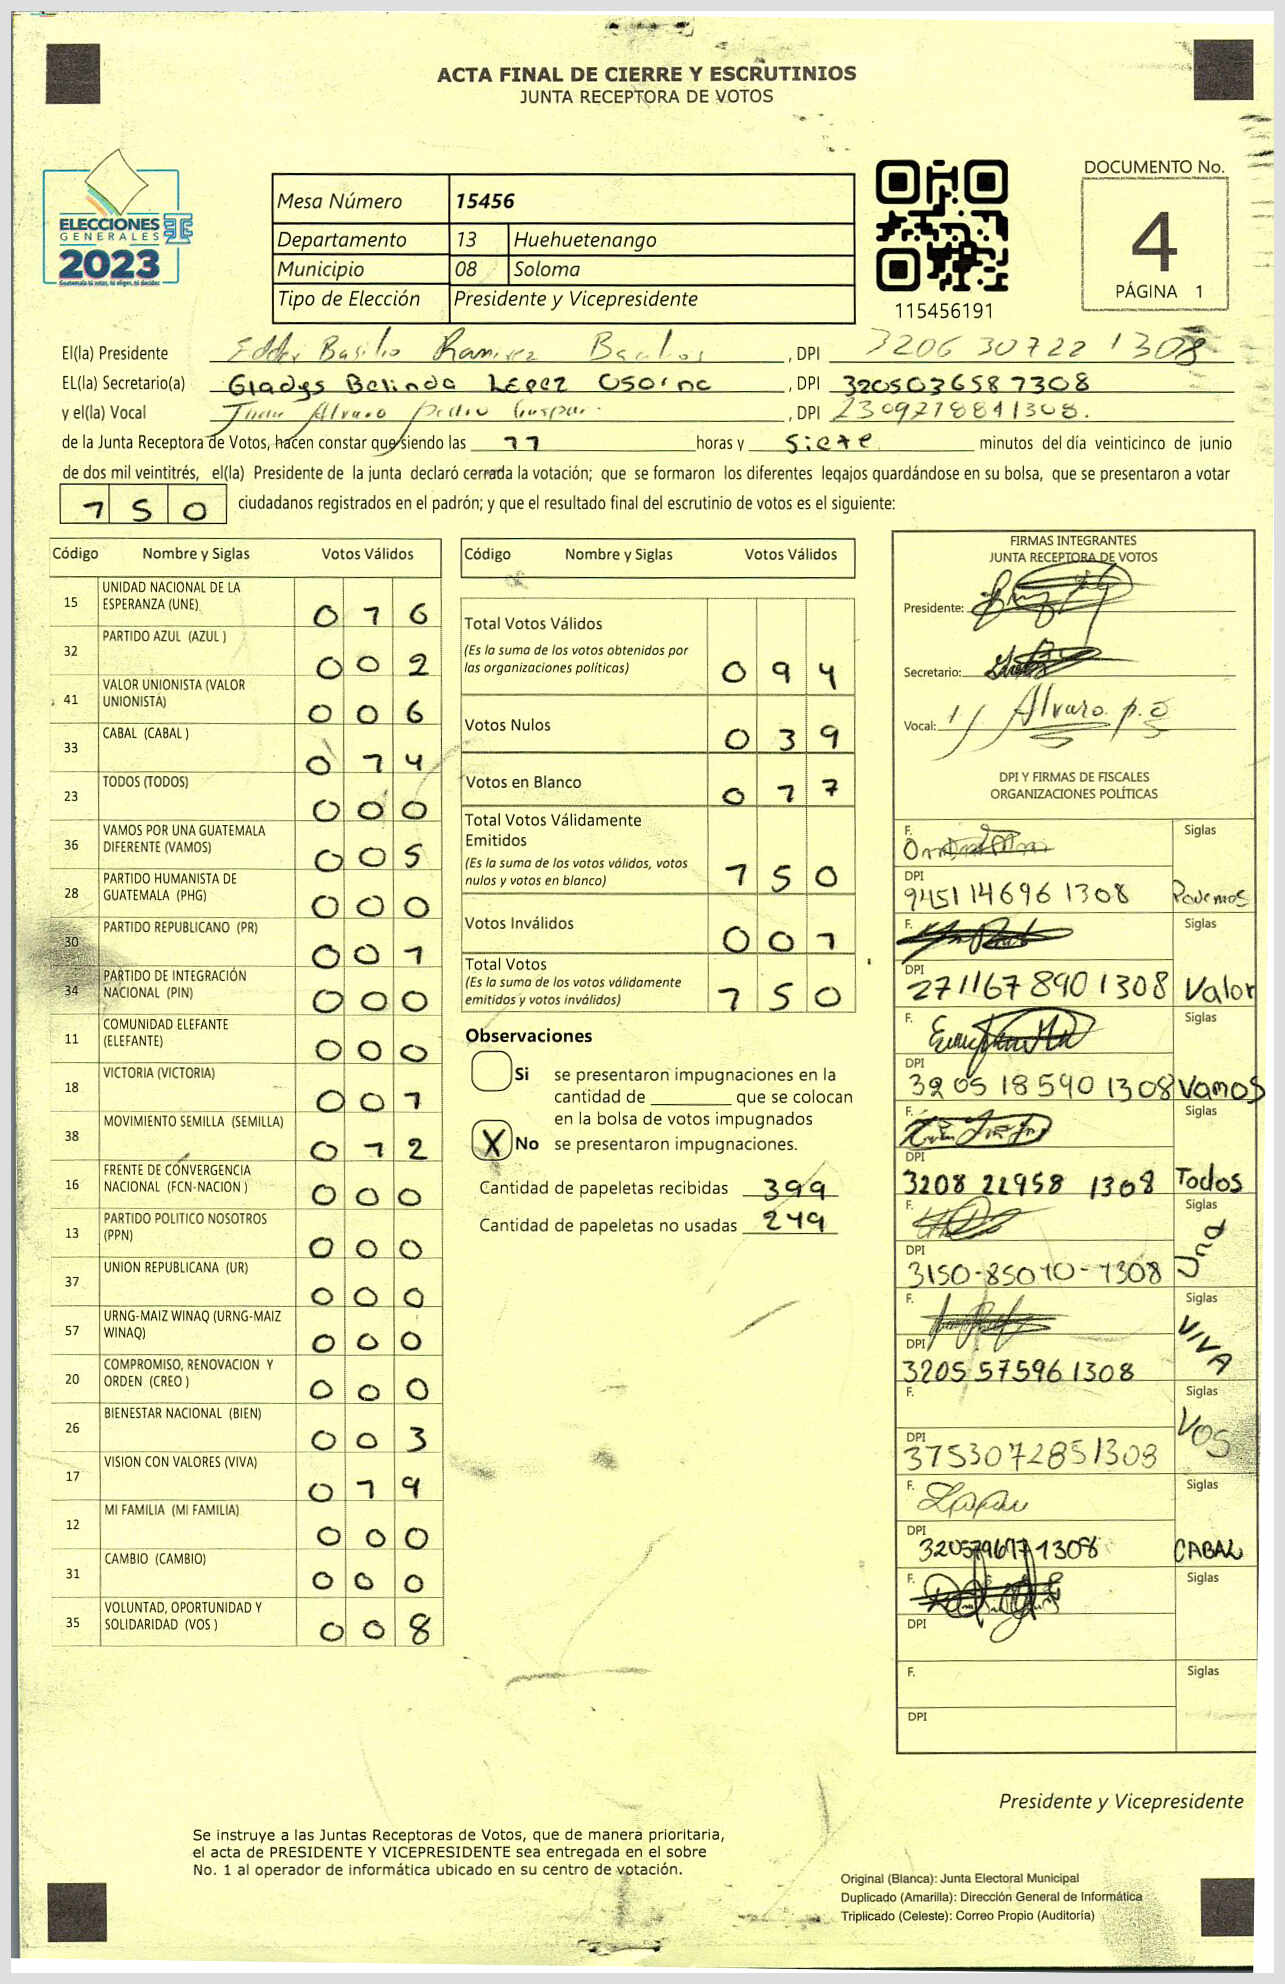 ACTA FINAL DE CIERRE Y ESCRUTINIOS
JUNTA RECEPTORA DE VOTOS
ELECCIONES
GENERALES
2023
Guatemala tú votas, tú eliges, tú decides
Mesa Número 15456
Departamento 13 Huehuetenango
Municipio 08 Soloma
Tipo de Elección Presidente y Vicepresidente
115456191
DOCUMENTO No.
4
PÁGINA 1
El(la) Presidente Edder Basilio Ramirez , DPI 3206307221308
EL(la) Secretario(a) Gladys Belinda López Osorno , DPI 3205036587308
y el(la) Vocal Juan Alvaro Pedro Gaspar , DPI 2309718841308.
de la Junta Receptora de Votos, hacen constar que siendo las 17 horas y Siete minutos del día veinticinco de junio
de dos mil veintitrés, el(la) Presidente de la junta declaró cerrada la votación; que se formaron los diferentes legajos guardándose en su bolsa, que se presentaron a votar
150 ciudadanos registrados en el padrón; y que el resultado final del escrutinio de votos es el siguiente:
Código Nombre y Siglas Votos Válidos
15 UNIDAD NACIONAL DE LA ESPERANZA (UNE) 016
32 PARTIDO AZUL (AZUL ) 002
41 VALOR UNIONISTA (VALOR UNIONISTA) 006
33 CABAL (CABAL ) 014
23 TODOS (TODOS) 000
36 VAMOS POR UNA GUATEMALA DIFERENTE (VAMOS) 005
28 PARTIDO HUMANISTA DE GUATEMALA (PHG) 000
30 PARTIDO REPUBLICANO (PR) 001
34 PARTIDO DE INTEGRACIÓN NACIONAL (PIN) 000
11 COMUNIDAD ELEFANTE (ELEFANTE) 000
18 VICTORIA (VICTORIA) 001
38 MOVIMIENTO SEMILLA (SEMILLA) 012
16 FRENTE DE CONVERGENCIA NACIONAL (FCN-NACION ) 000
13 PARTIDO POLITICO NOSOTROS (PPN) 000
37 UNION REPUBLICANA (UR) 000
57 URNG-MAIZ WINAQ (URNG-MAIZ WINAQ) 000
20 COMPROMISO, RENOVACION Y ORDEN (CREO ) 000
26 BIENESTAR NACIONAL (BIEN) 003
17 VISION CON VALORES (VIVA) 019
12 MI FAMILIA (MI FAMILIA) 000
31 CAMBIO (CAMBIO) 000
35 VOLUNTAD, OPORTUNIDAD Y SOLIDARIDAD (VOS ) 008
Código Nombre y Siglas Votos Válidos
Total Votos Válidos 094
(Es la suma de los votos obtenidos por
las organizaciones políticas)
Votos Nulos 039
Votos en Blanco 017
Total Votos Válidamente
Emitidos 150
(Es la suma de los votos válidos, votos
nulos y votos en blanco)
Votos Inválidos 001
Total Votos 150
(Es la suma de los votos válidamente
emitidos y votos inválidos)
Observaciones
Si se presentaron impugnaciones en la
cantidad de ________ que se colocan
en la bolsa de votos impugnados
X No se presentaron impugnaciones.
Cantidad de papeletas recibidas 399
Cantidad de papeletas no usadas 249
FIRMAS INTEGRANTES
JUNTA RECEPTORA DE VOTOS
Presidente:
Secretario:
Vocal: Alvaro p.
DPI Y FIRMAS DE FISCALES
ORGANIZACIONES POLÍTICAS
F. Siglas
DPI 945114696 1308 Podemos
F. Siglas
DPI 271167 890 1308 Valor
F. Siglas
DPI 3205 18590 1308 Vamos
F. Siglas
DPI 3208 22958 1308 Todos
F. Siglas
DPI 3150-85010-1308 Una
F. Siglas
DPI 3205 57596 1308 VIVA
F. Siglas
DPI 3753072851308 VOS
F. Siglas
DPI CABAL
F. Siglas
DPI
F. Siglas
DPI
Presidente y Vicepresidente
Se instruye a las Juntas Receptoras de Votos, que de manera prioritaria,
el acta de PRESIDENTE Y VICEPRESIDENTE sea entregada en el sobre
No. 1 al operador de informática ubicado en su centro de votación.
Original (Blanca): Junta Electoral Municipal
Duplicado (Amarilla): Dirección General de Informática
Triplicado (Celeste): Correo Propio (Auditoría)